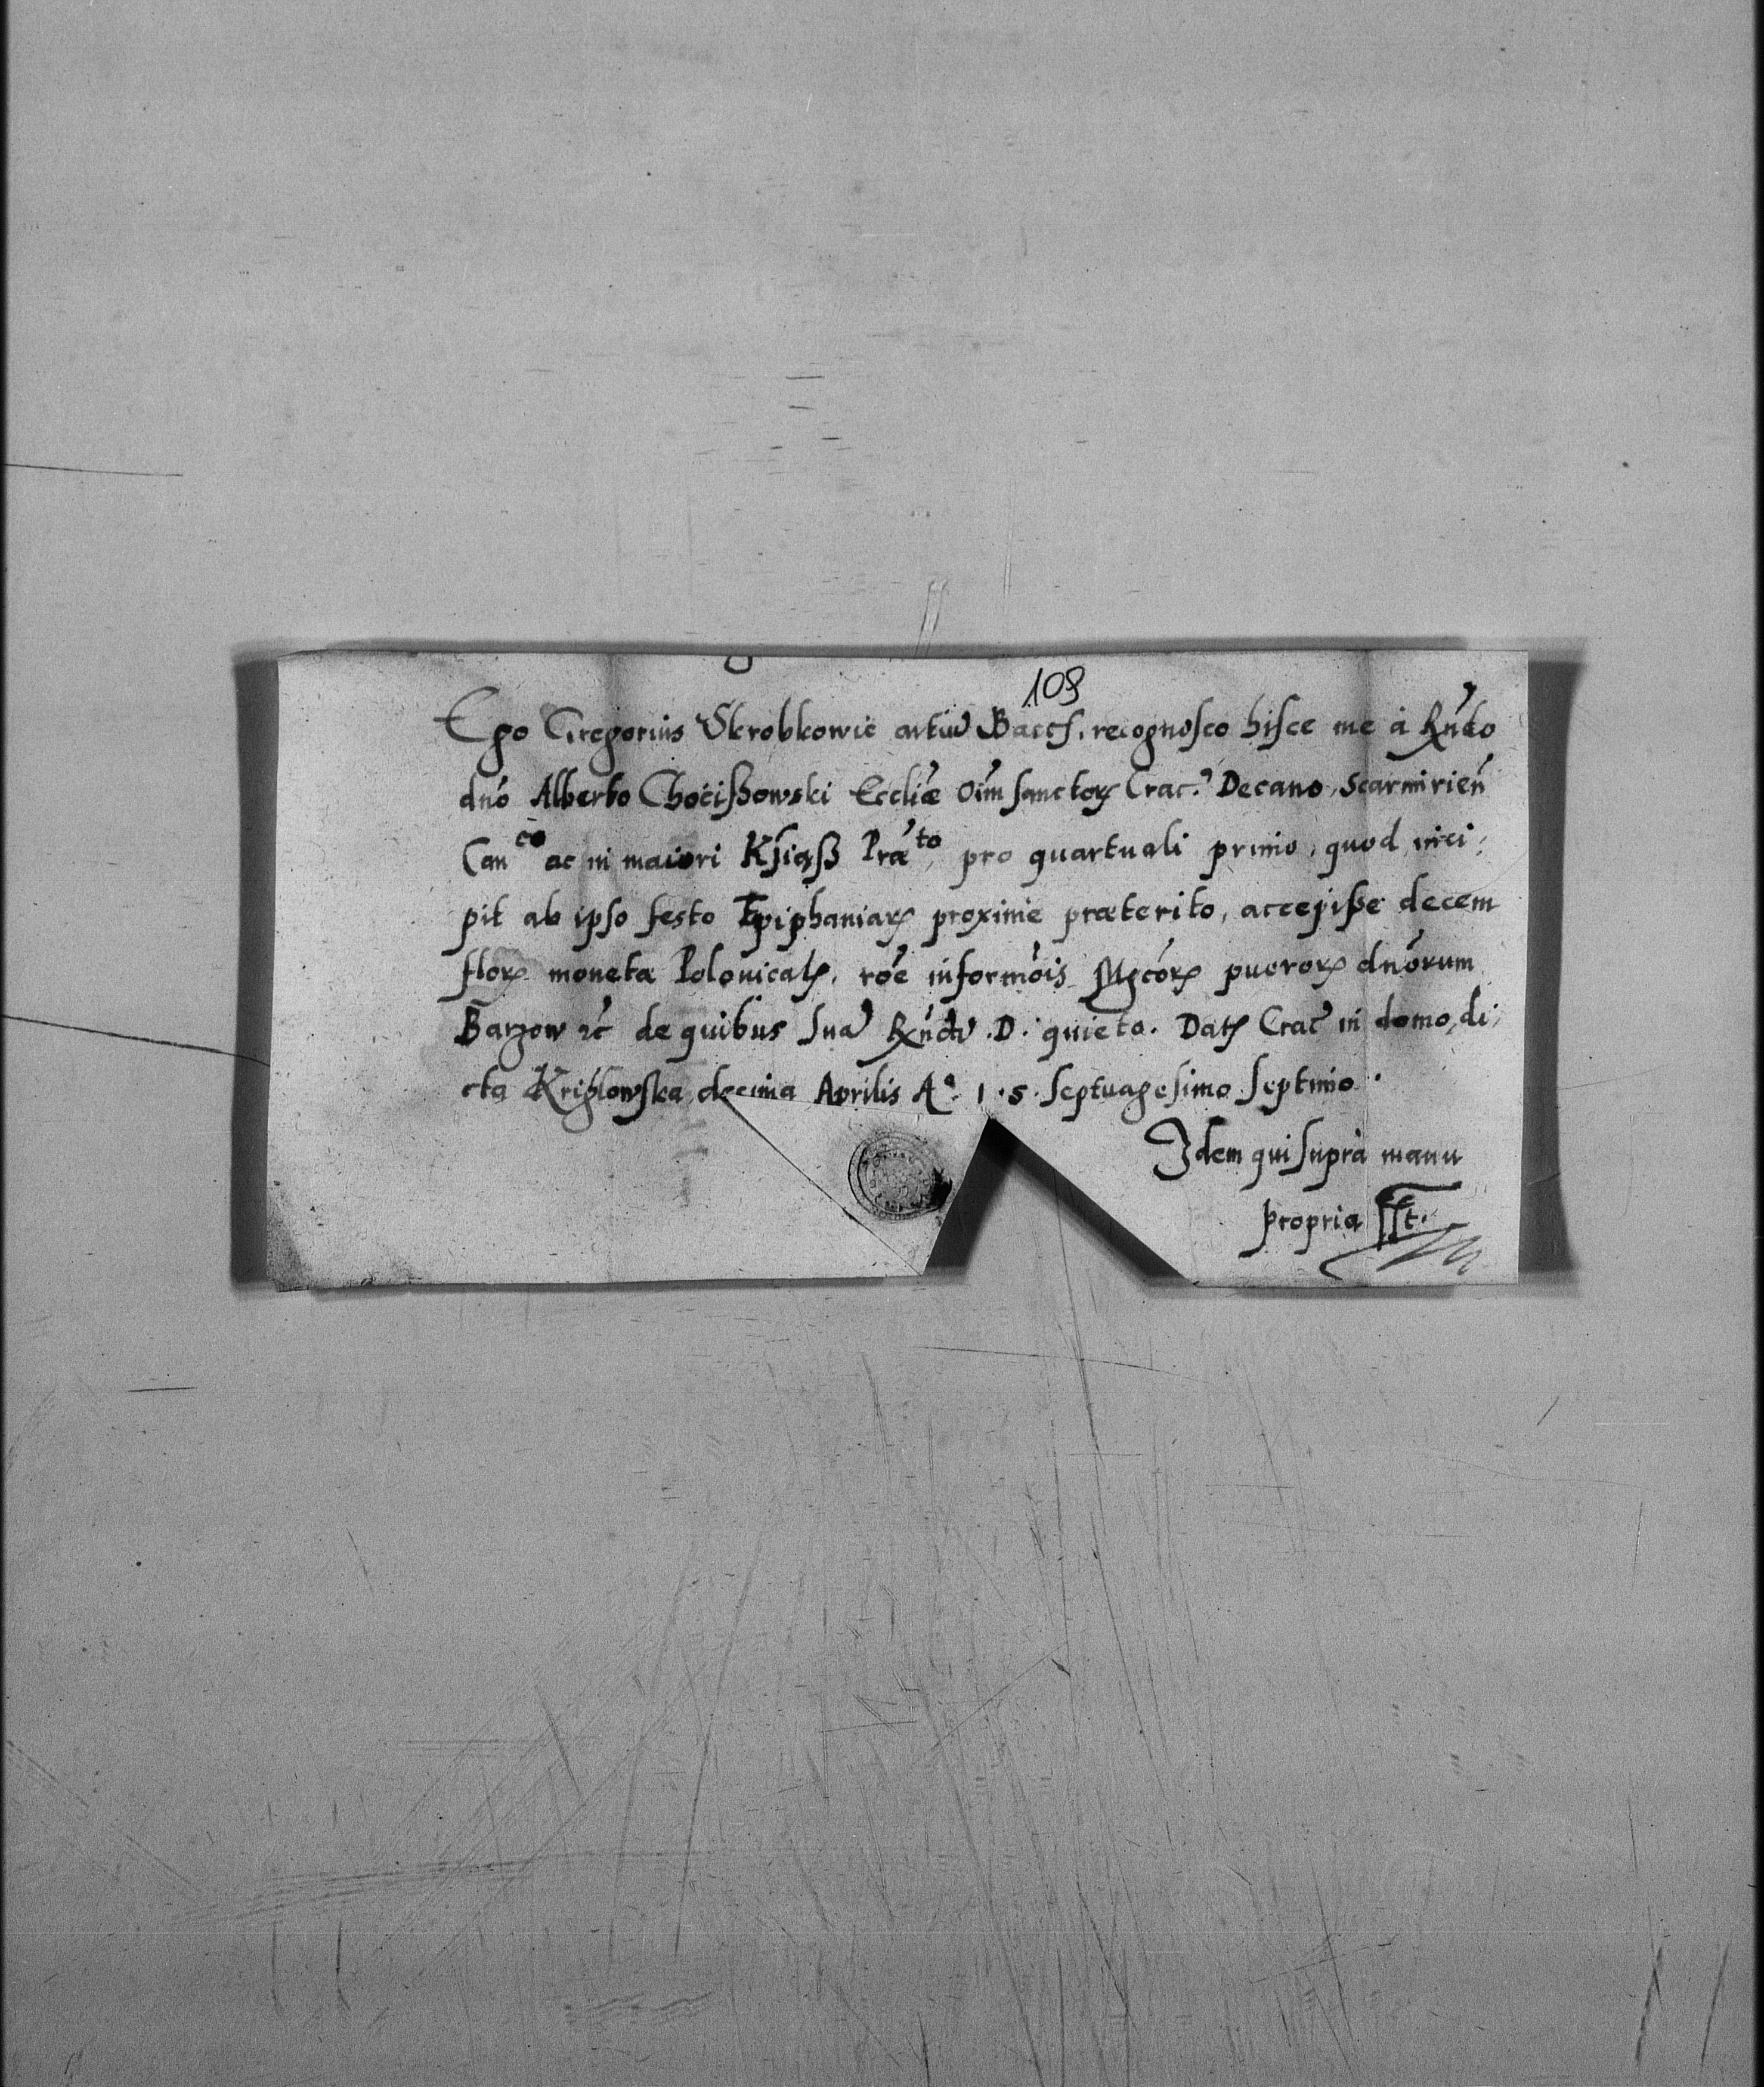 109
Ego Gregorius Skrobkowic artiū Bacc͛. recognosco hisce me à Rńdo
dńo Alberto Choćißowski Eccliǽ Oím̄ sanctorꝝ Crac.͛ Decano, Scarmirień
Canco ac in maiori Ksiąß Præ͛to pro quartuali primo, quod inci:
pit ab ipso festo Epiphaniarꝝ proxime præterito, accepiße decem
florꝝ moneta Polonicalꝭ, róe informóis Mgcórꝝ puerorꝝ dnórum
Barzow ꝛc̃ de quibus suā Rńdā .D. quieto. Datꝭ Crac͛ in domo, di,
cta Krißlowska decima Aprilis Aº. 1.5. septuagesimo septimo.
Idem qui suprà manu
propria sst.